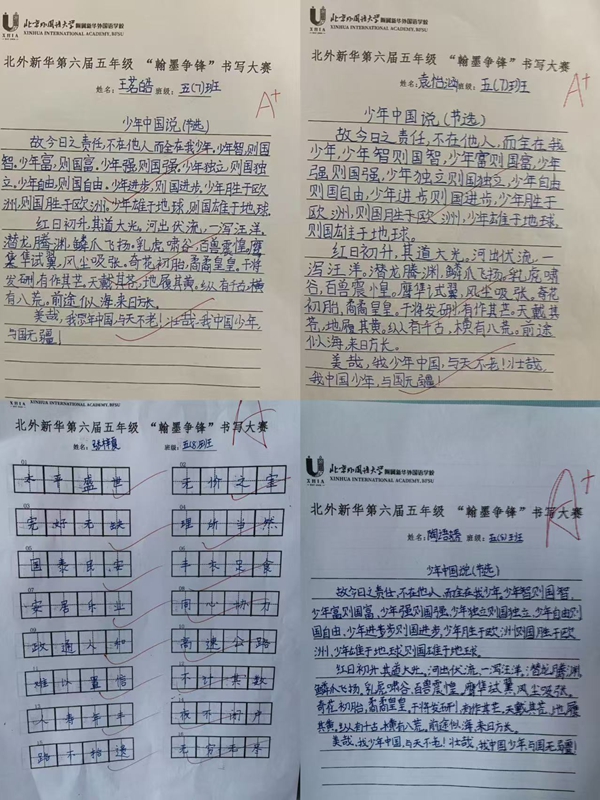 北京外国语大学附属新华外国语学校
XINHUA INTERNATIONAL ACADEMY, BFSU
XHIA
北外新华第六届五年级 “翰墨争锋”书写大赛
姓名：王茗皓 班级：五(7)班
A+
少年中国说(节选)
故今日之责任,不在他人,而全在我少年,少年智,则国
智。少年富,则国富。少年强,则国强。少年独立,则国独
立,少年自由,则国自由。少年进步,则国进步,少年胜于欧
洲,则国胜于欧洲,少年雄于地球,则国雄于地球。
红日初升,其道大光。河出伏流,一泻汪洋。
潜龙腾渊,鳞爪飞扬。乳虎啸谷,百兽震惶,鹰
隼试翼,风尘吸张。奇花初胎,矞矞皇皇。干将
发硎,有作其芒。天戴其苍,地履其黄。纵有千古,横
有八荒。前途似海,来日方长。
美哉,我少年中国,与天不老!壮哉,我中国少年,
与国无疆!
北京外国语大学附属新华外国语学校
XINHUA INTERNATIONAL ACADEMY, BFSU
XHIA
北外新华第六届五年级 “翰墨争锋”书写大赛
姓名：袁怡涵 班级：五(7)班
A+
少年中国说(节选)
故今日之责任,不在他人,而全在我
少年,少年智则国智,少年富则国富,少年
强则国强,少年独立则国独立,少年自由
则国自由,少年进步则国进步,少年胜于
欧洲,则国胜于欧洲,少年雄于地球,
则国雄于地球。
红日初升,其道大光。河出伏流,一
泻汪洋。潜龙腾渊,鳞爪飞扬,乳虎啸
谷,百兽震惶。鹰隼试翼,风尘吸张。奇花
初胎,矞矞皇皇。干将发硎,有作其芒。天戴其
苍,地履其黄。纵有千古,横有八荒。前途
似海,来日方长。
美哉,我少年中国,与天不老!壮哉,
我中国少年,与国无疆!
XHIA
XINHUA INTERNATIONAL ACADEMY, BFSU
北外新华第六届五年级 “翰墨争锋”书写大赛
姓名： 班级：五(8)班
A+
01 太平盛世
02 无价之宝
03 完好无缺
04 理所当然
05 国泰民安
06 丰衣足食
07 安居乐业
08 同心协力
09 政通人和
10 高速公路
11 难以置信
12 不计其数
人寿年丰
夜不闭户
路不拾遗
无穷无尽
北京外国语大学附属新华外国语学校
XINHUA INTERNATIONAL ACADEMY, BFSU
XHIA
北外新华第六届五年级 “翰墨争锋”书写大赛
班级：五(8)班
A+
少年中国说(节选)
故今日之责任,不在他人,而全在我少年,少年智则国智,
少年富则国富,少年强则国强,少年独立则国独立,少年自由则
国自由,少年进步则国进步,少年胜于欧洲则国胜于欧
洲,少年雄于地球则国雄于地球。
红日初升,其道大光。河出伏流,一泻汪洋。潜龙腾渊,
鳞爪飞扬。乳虎啸谷,百兽震惶,鹰隼试翼,风尘吸张。
奇花初胎,矞矞皇皇。干将发硎,有作其芒。天戴其苍,地履
其黄。纵有千古,横有八荒。前途似海,来日方长。
美哉,我少年中国,与天不老!壮哉,我中国少年,与国无疆!